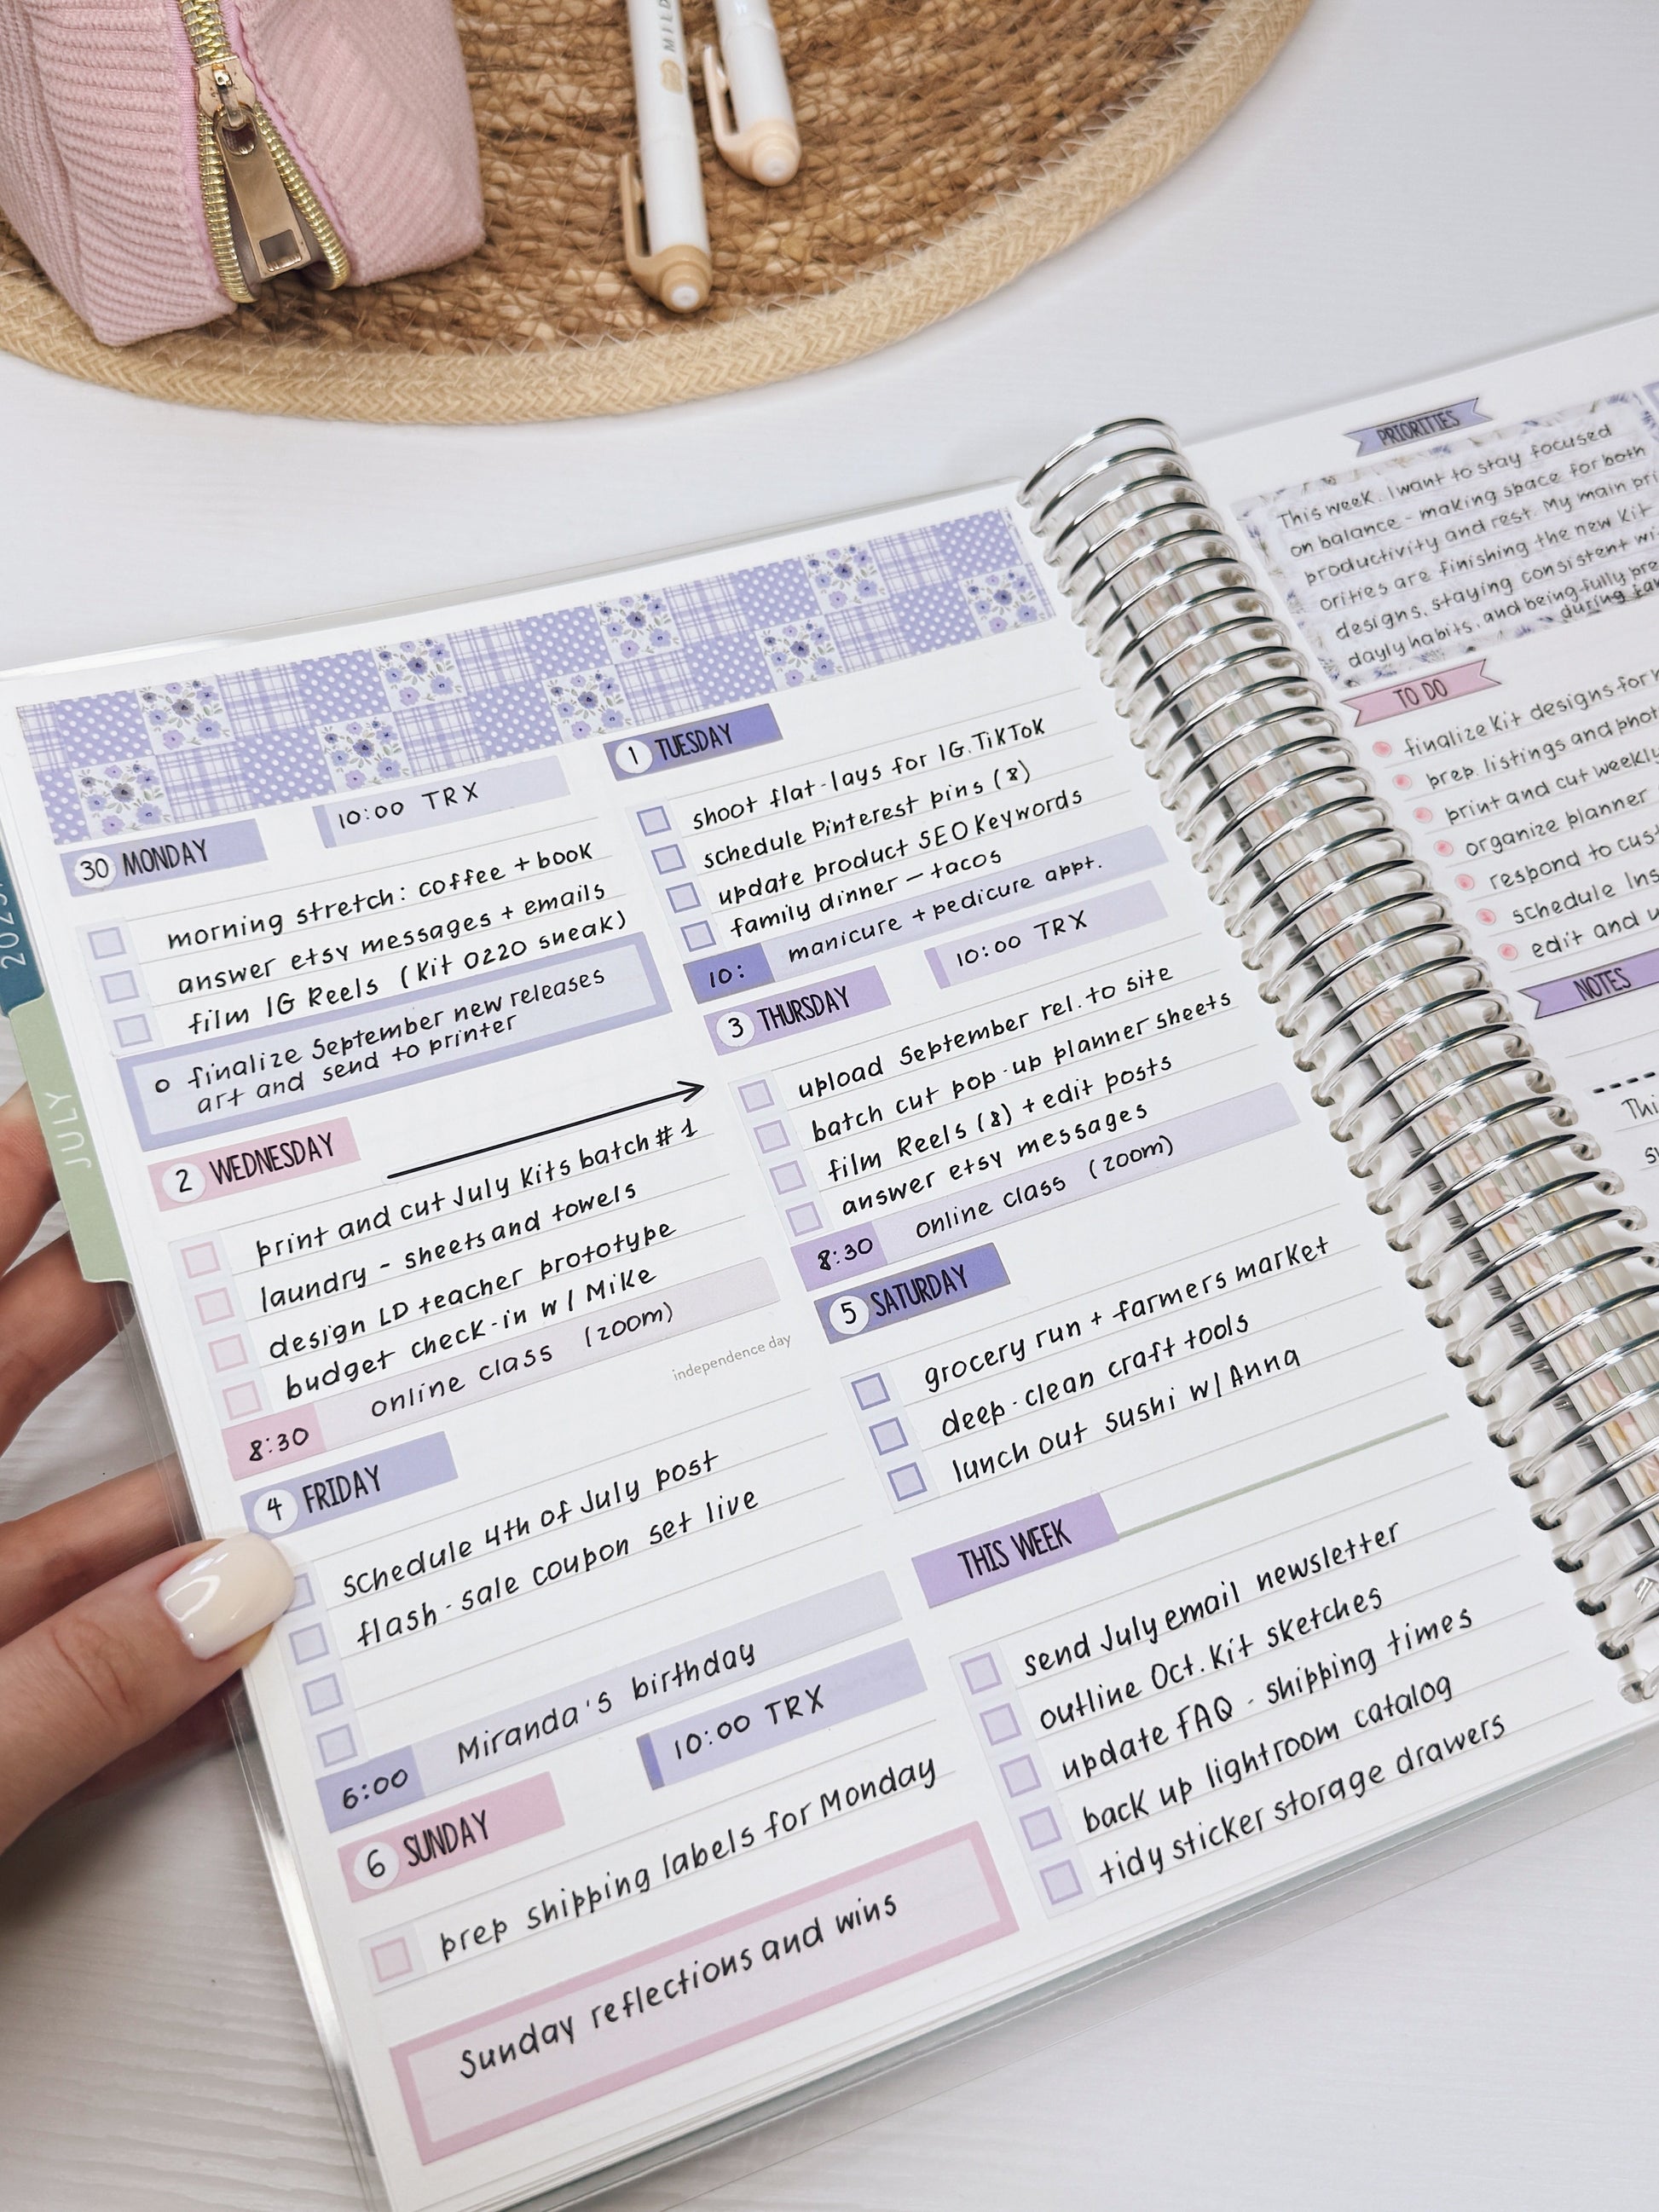 MILD
2025
JULY
30 MONDAY
10:00 TRX
morning stretch: coffee + book
answer etsy messages + emails
film IG Reels (Kit 0220 sneak)
o finalize September new releases
art and send to printer
1 TUESDAY
shoot flat-lays for IG. TikTok
schedule Pinterest pins (8)
update product SEO Keywords
family dinner – tacos
10: manicure + pedicure appt.
2 WEDNESDAY
print and cut July Kits batch #1
laundry - sheets and towels
design LD teacher prototype
budget check-in w/ Mike
8:30 online class (zoom)
3 THURSDAY
10:00 TRX
upload September rel. to site
batch cut pop-up planner sheets
film Reels (8) + edit posts
answer etsy messages
8:30 online class (zoom)
independence day
4 FRIDAY
schedule 4th of July post
flash-sale coupon set live
6:00 Miranda's birthday
5 SATURDAY
grocery run + farmers market
deep-clean craft tools
lunch out sushi w/ Anna
6 SUNDAY
10:00 TRX
prep shipping labels for Monday
Sunday reflections and wins
THIS WEEK
send July email newsletter
outline Oct. Kit sketches
update FAQ - shipping times
back up lightroom catalog
tidy sticker storage drawers
PRIORITIES
This week, I want to stay focused
on balance - making space for both
productivity and rest. My main pri
orities are finishing the new Kit
designs, staying consistent wi
dayly habits, and being fully pre
during fam
TO DO
finalize Kit designs for
prep listings and phot
print and cut weekly
organize planner
respond to cus
schedule Ins
edit and u
NOTES
Thi